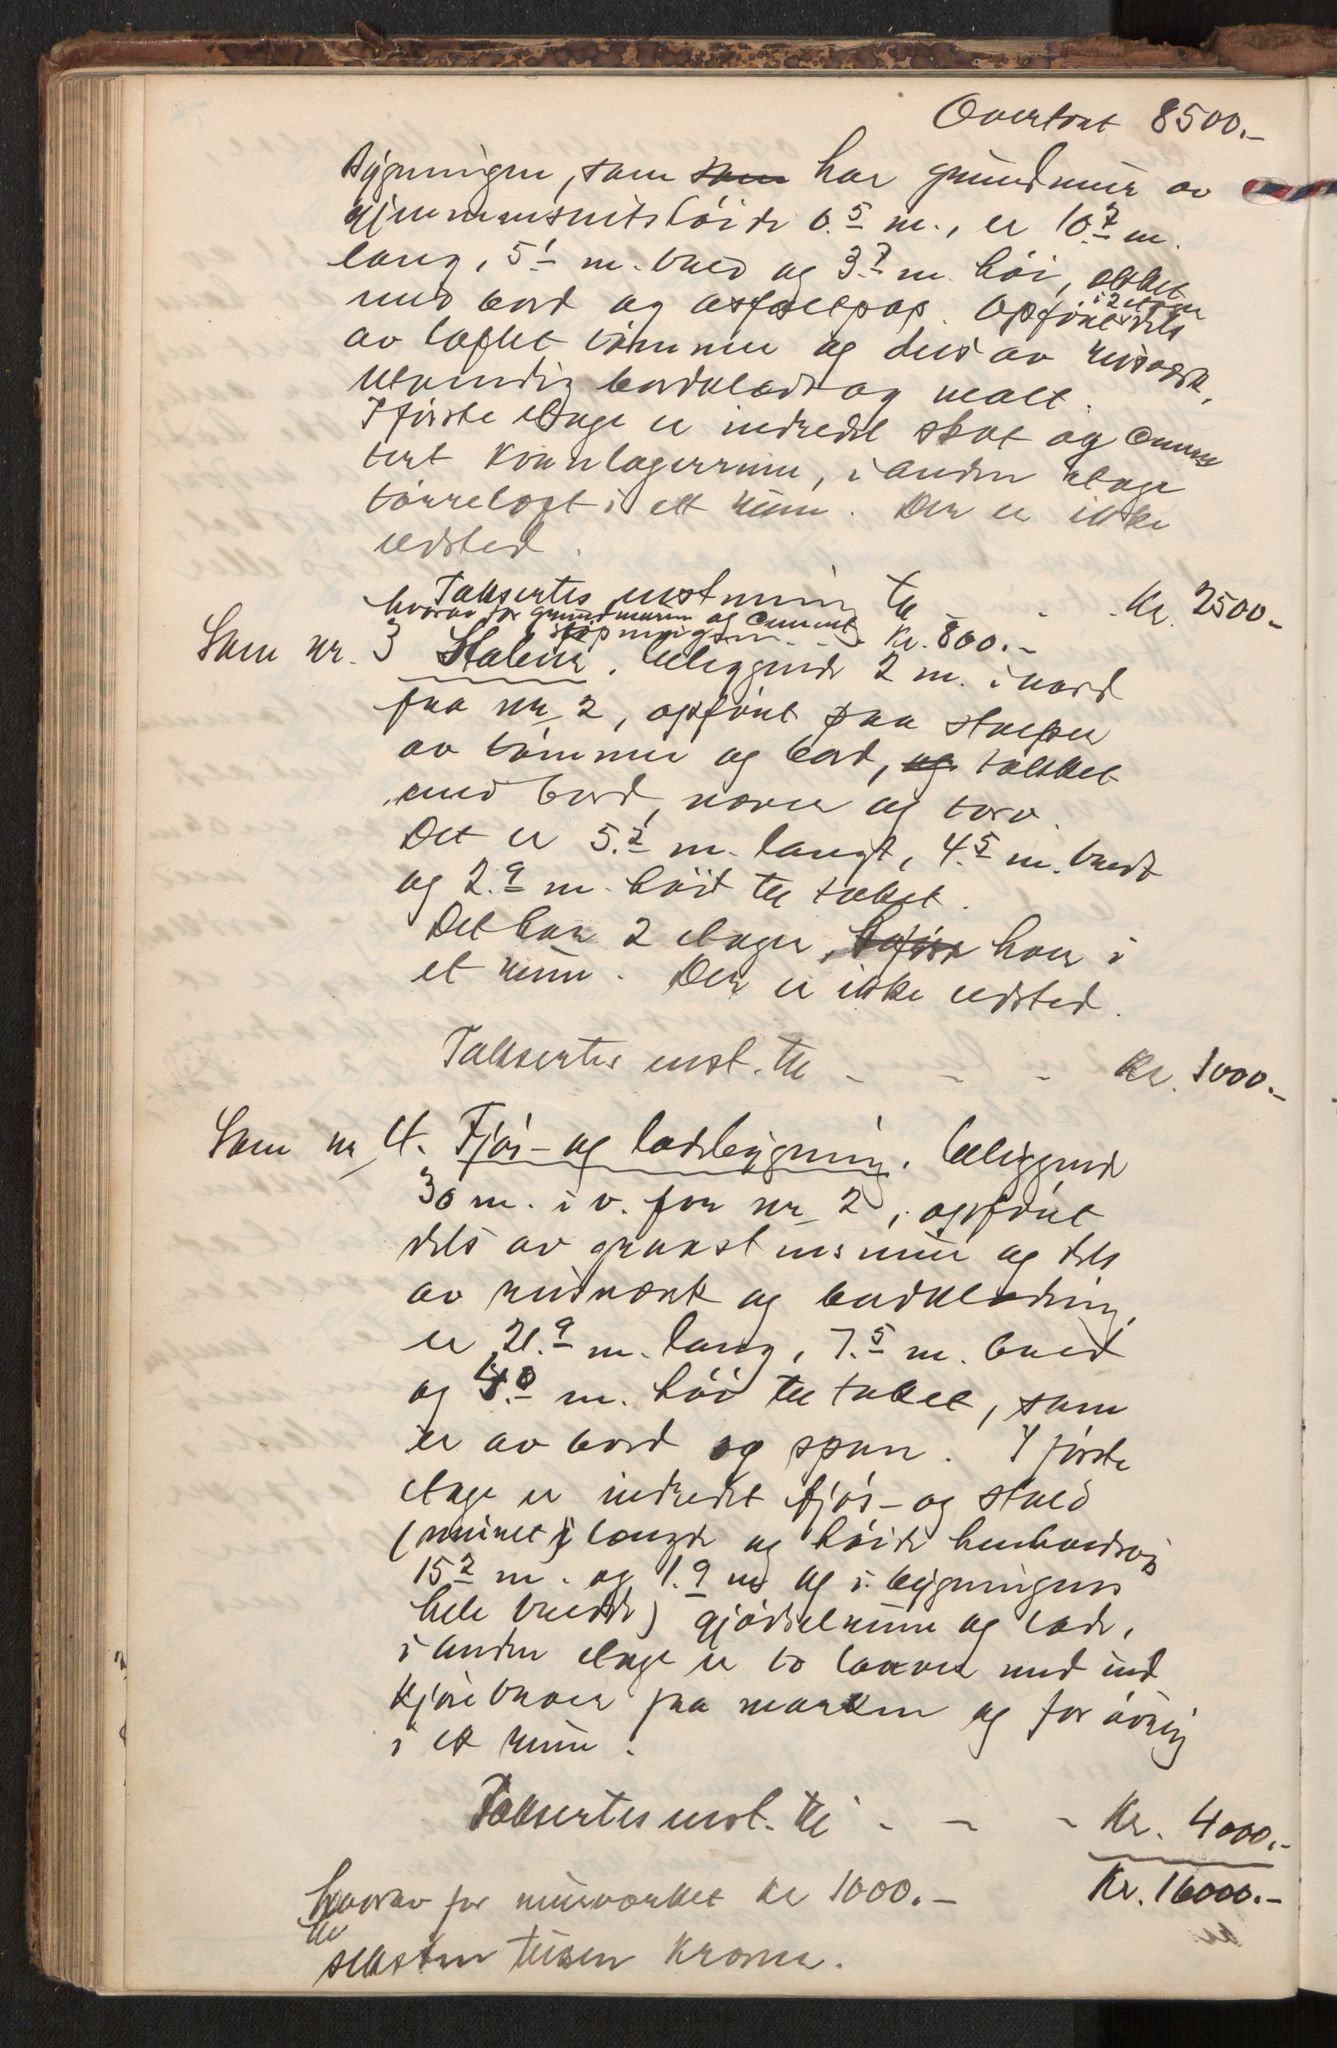 Overført 8500.-
Bygningen, som som har grundmur av
gjennemsnitshöide 0.5 m., er 10.7 m.
lang, 5.1 m. bred og 3.7 m. höi, tækket
med bord og asfaltpap. Opført i 2 etager dels
av laftet tömmer og dels av reisverk,
utvendig bordklædt og malt.
I förste etage er indredet skot og cemen-
tert kornlagerrum, i anden etage
törreloft i ett rum. Der er ikke
ildsted.
Takseres uten tomt til - - - Kr. 2500.-
hvorav for grundmuren og cement-
støpningen - - Kr. 800.-
Som nr. 3 Stabur, beliggende 2 m. i nord
fra nr 2, opført paa stolper
av tömmer og bord, og tækket
med bord, næver og torv.
Det er 5.2 m. langt, 4.5 m. bredt
og 2.9 m. höit til taket.
Det har 2 etager, hver i
et rum. Der er ikke ildsted.
Takseres til - - - Kr. 1000.-
Som nr 4. Fjös- og ladebygning, beliggende
30 m. i v. for nr 2, opfört
dels av graastensmur og dels
av reisværk og bordklædning,
er 21.9 m. lang, 7.5 m. bred
og 4.8 m. höi til taket, som
er av bord og spon. I förste
etage er indredet fjös- og stald
(muret i længde og höide henholdsvis
15.2 m. og 1.9 m og i bygningens
hele bredde) gjödselrum og lade,
i anden etage er to laaver med ind
kjörebroer fra marken og for övrig
i et rum.
Takseres til - - - Kr. 4000.-
hvorav for murværket Kr 1000.- Kr. 16000.-
seksten tusen kroner.